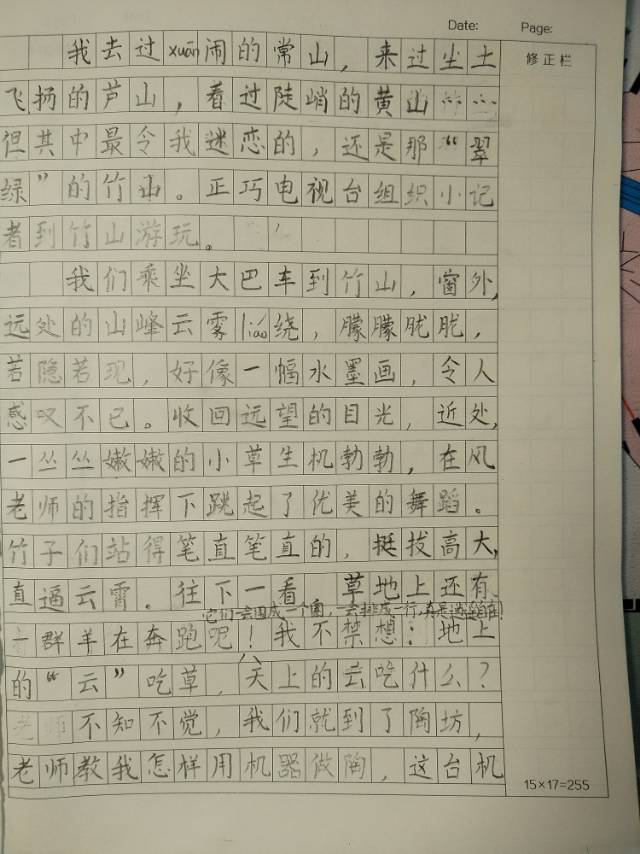 Date: Page:
我去过xuān闹的常山，来过尘土
修正栏
飞扬的芦山，看过陡峭的黄山……
但其中最令我迷恋的，还是那“翠
绿”的竹山。正巧电视台组织小记
者到竹山游玩。
我们乘坐大巴车到竹山，窗外，
远处的山峰云雾liáo绕，朦朦胧胧，
若隐若现，好像一幅水墨画，令人
感叹不已。收回远望的目光，近处，
一丛丛嫩嫩的小草生机勃勃，在风
老师的指挥下跳起了优美的舞蹈。
竹子们站得笔直笔直的，挺拔高大，
直逼云霄。往下一看，草地上还有
它们一会围成一个圈，一会排成一行，真是逍遥自在！
一群羊在奔跑呢！我不禁想：地上
的“云”吃草，天上的云吃什么？
老师不知不觉，我们就到了陶坊，
老师教我怎样用机器做陶，这台机
15×17=255